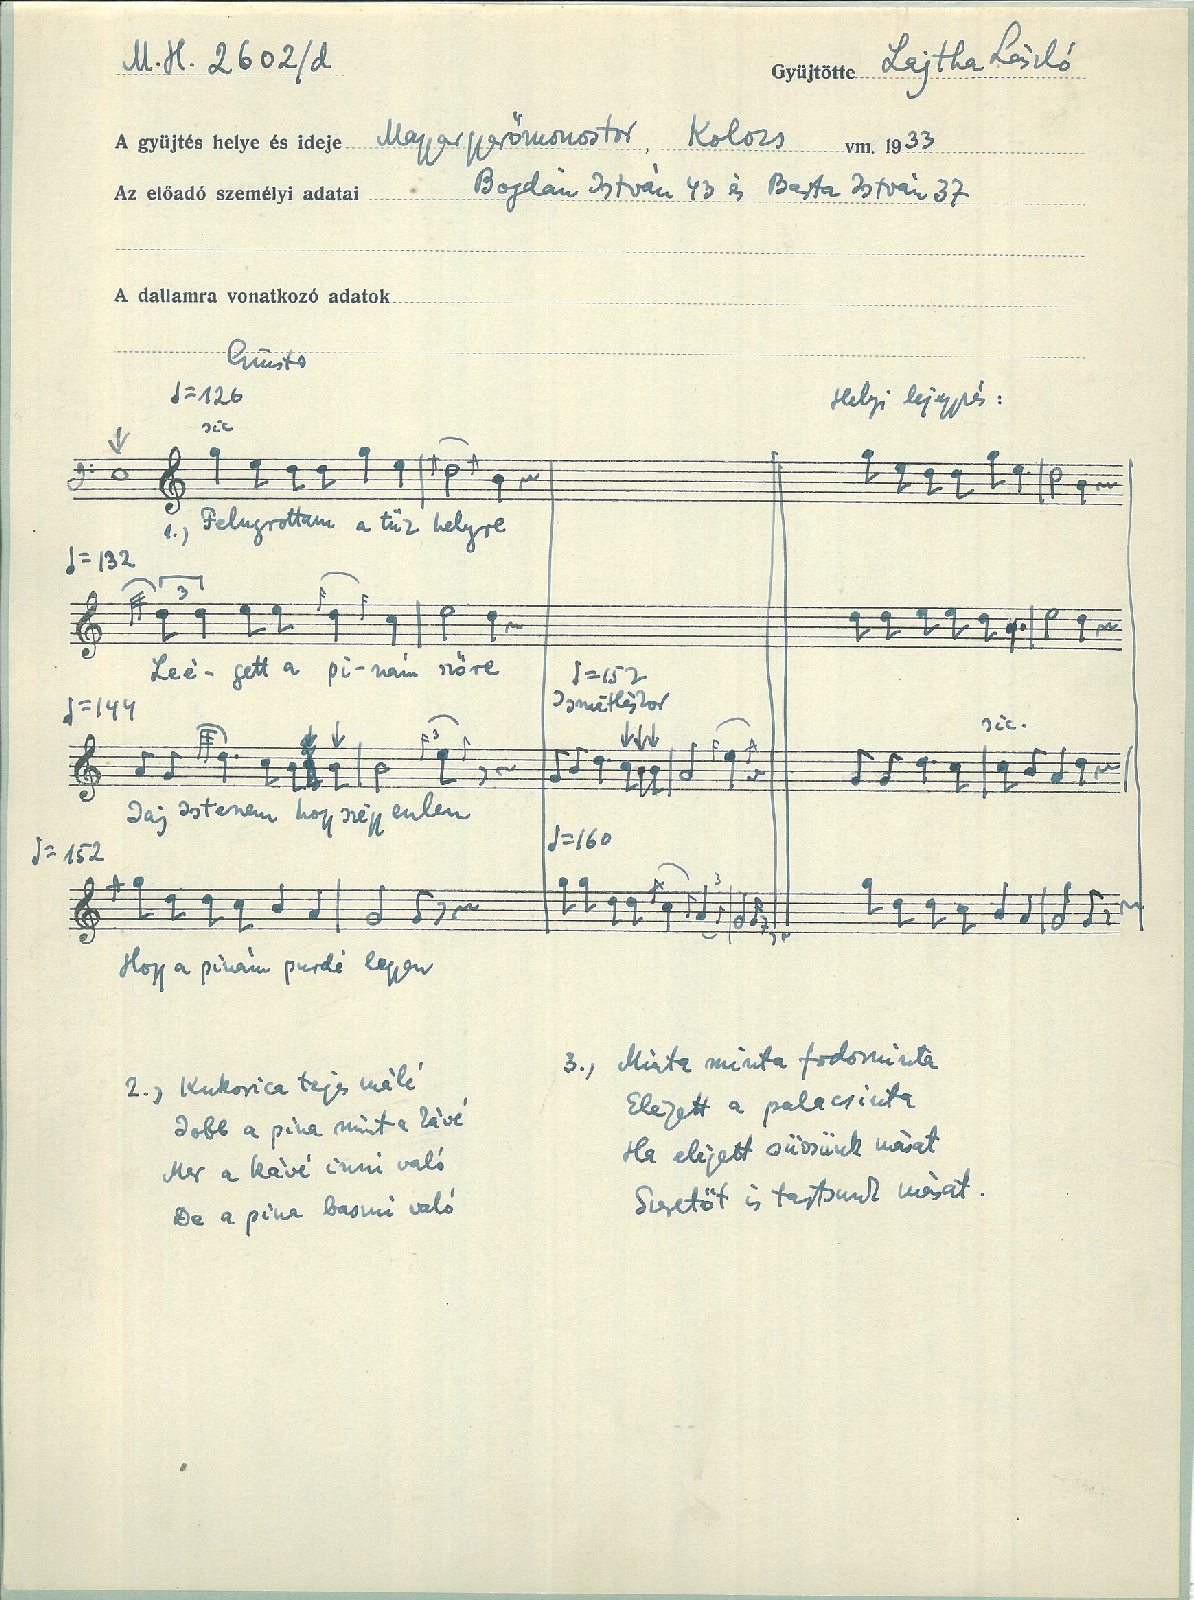 M.H. 2602/d
Gyüjtötte Lajtha László
A gyüjtés helye és ideje Magyargyerőmonostor, Kolozs vm. 1933
Az előadó személyi adatai Bogdán István 43 és Barta István 37
A dallamra vonatkozó adatok
Giusto
♩=126
Helyi lejegyzés:
sic
1.) Felugrottam a tűz helyre
♩=132
3
Leé- gett a pi-nám szőre
♩=152
♩=144
Ismétléskor
sic.
3
Jaj Istenem hogy szégyenlem
♩=152
♩=160
3
Hogy a pinám purdé legyen
2.) Kukorica tejes málé
Jobb a pina mint a kávé
Mer a kávé inni való
De a pina baszni való
3.) Minta minta fodorminta
Elegett a palacsinta
Ha elégett süssünk másat
Szeretőt is tartsunk másat.